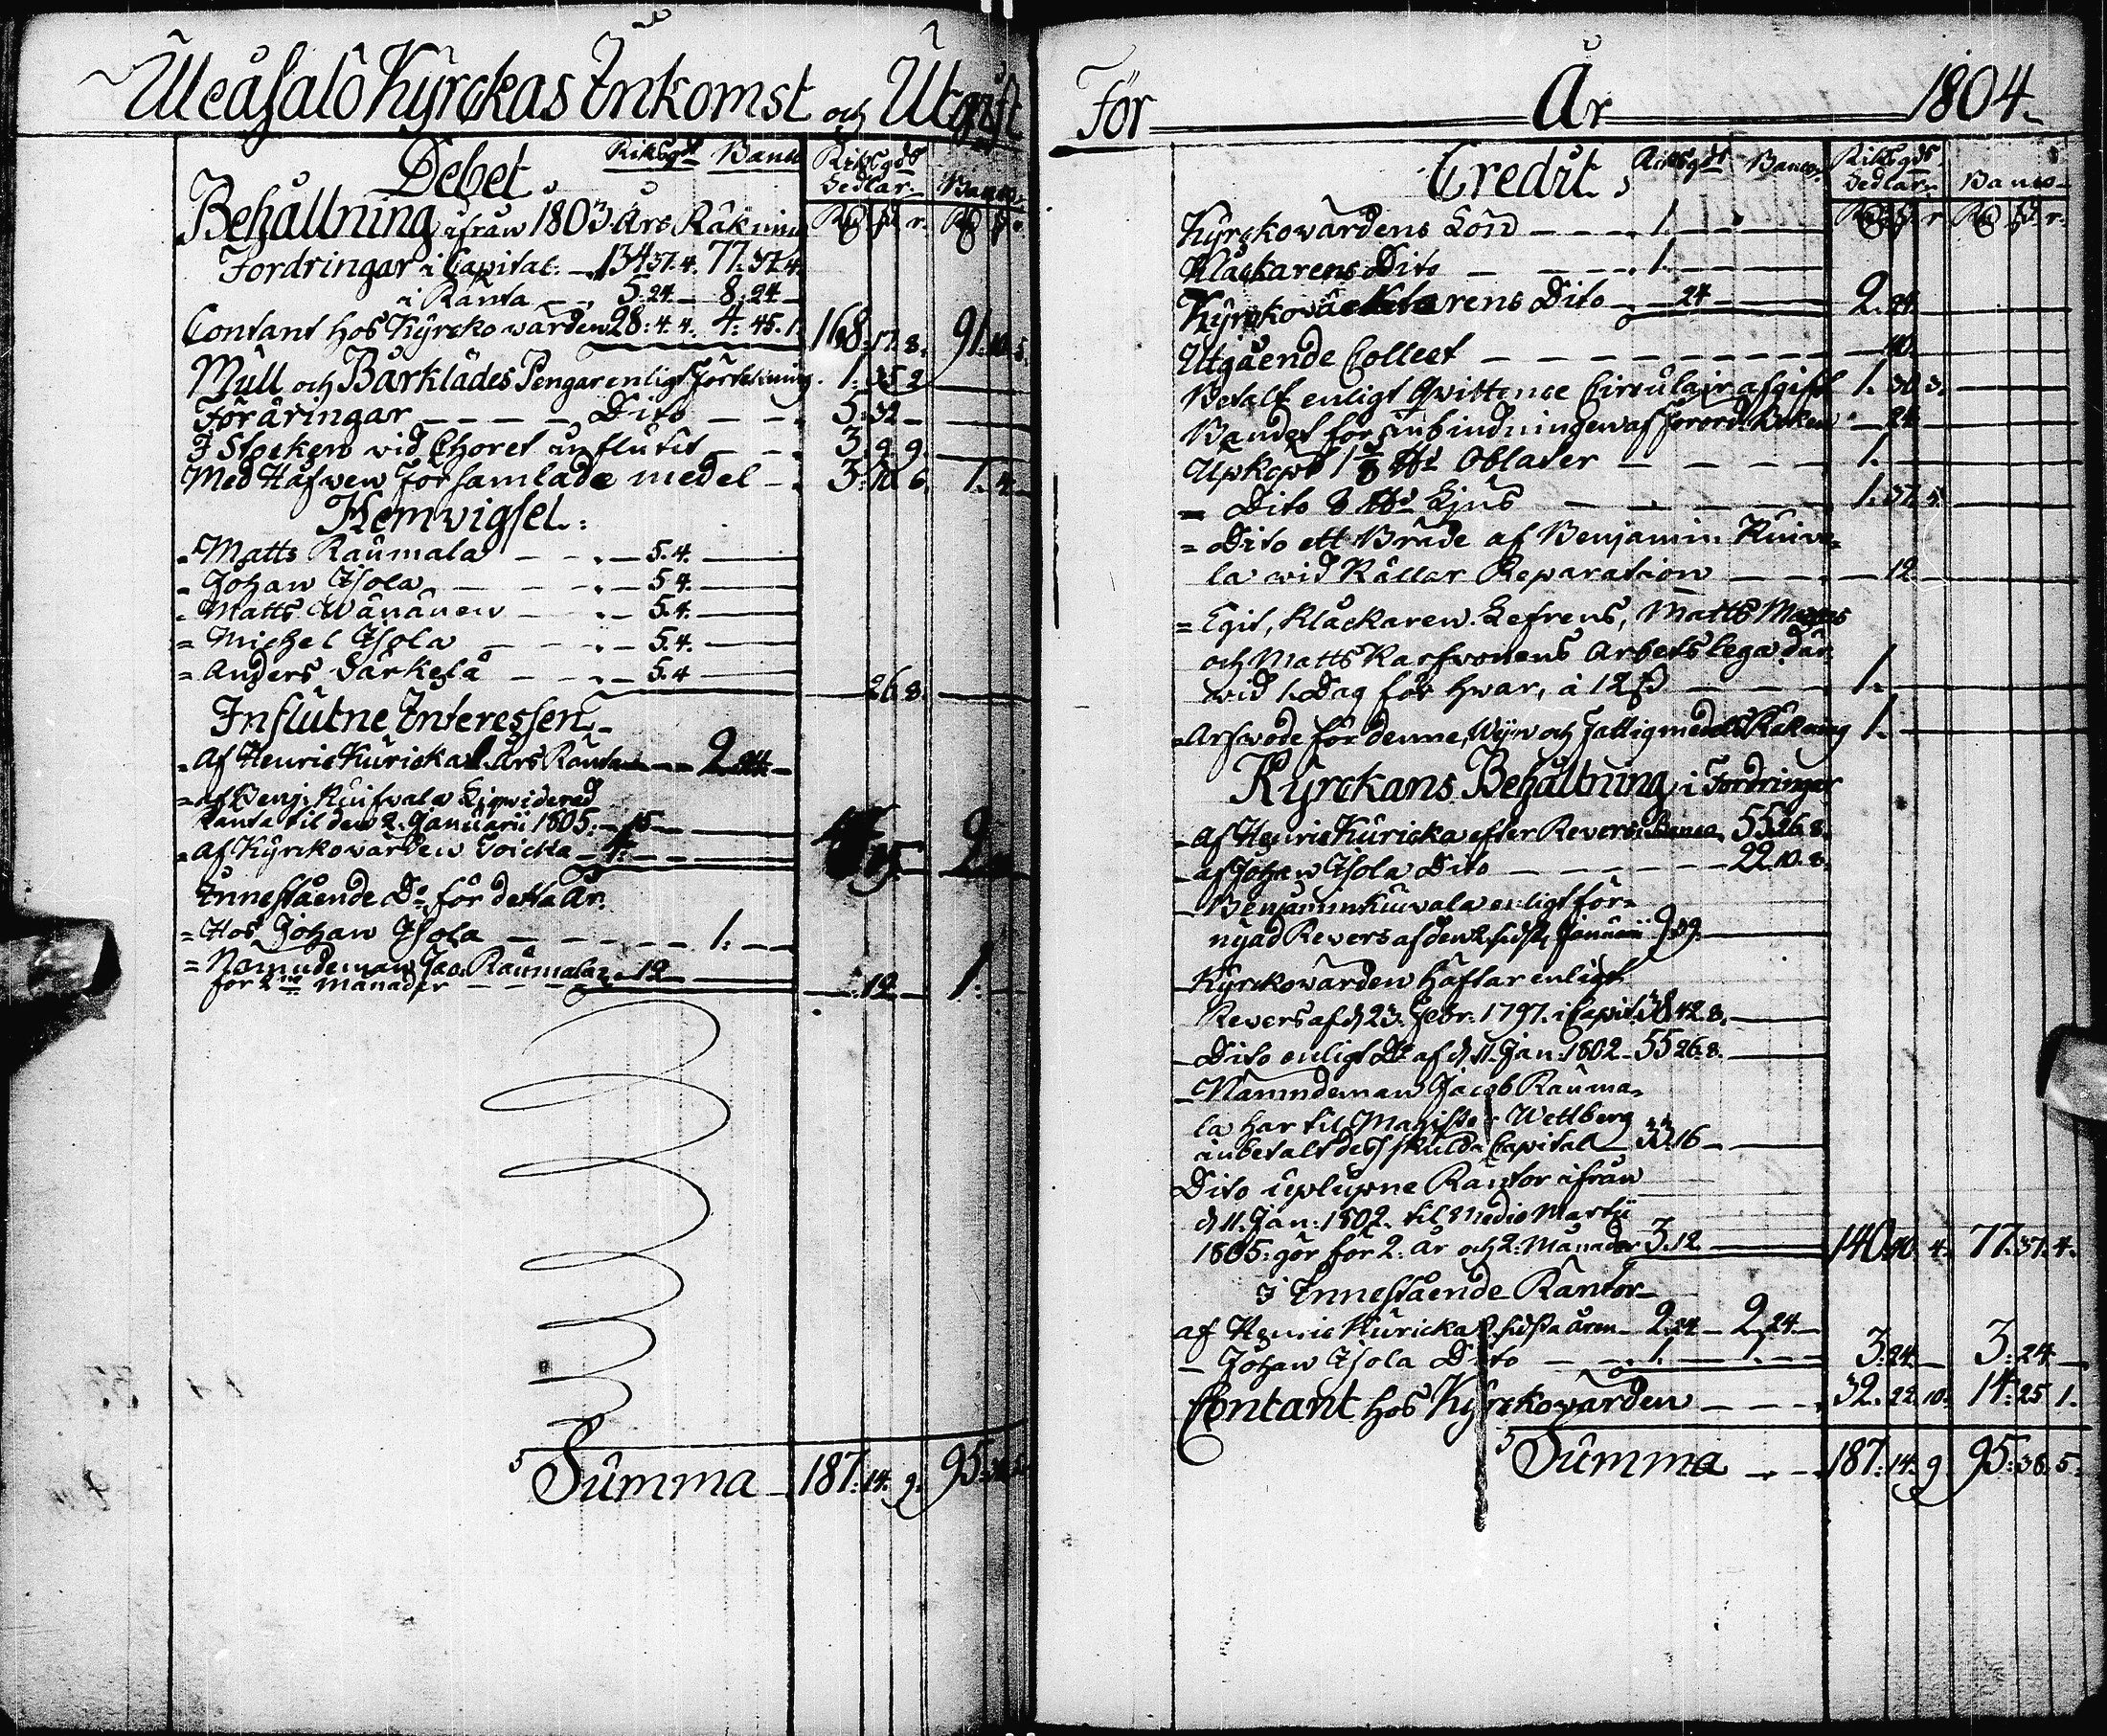 Uleåsalo Kyrckas Inkomst och Utgift
Debet. Riksgds Banco Riksgds Sedlar. Banco
Behållning ifrån 1803 Års Räkning
Fordringar i Capital. 134.37.4. 77.37.4.
i Ränta 5.24 8.24
Contant hos Kyrckowärden 28.4.4. 4.45.1. 168.17.8. 91.10.5.
Mull och Bårklädes Pengar enligt Förtekning. 1.35.2
Föräringar Dito 5.32
I Stocken vid Choret influtit 3.9.9.
Med Håfwen Församlade medel 3.10.6. 1.4
Hemvigsel.
Matts Raumala 5.4.
Johan Isola 5.4.
Matts Wänänen 5.4.
Michel Isola 5.4.
Anders Särkelä 5.4
26.8.
Influtne Interessen
Af Henric Kuricka Års Räntan 2.24
af Benj. Kuifvala Liqwiderad
Ränta til den 2. Januarii 1805. 15
Af Kyrckowärden Toicka 4. 15. 2
Innestående Do för detta År.
Hos Johan Isola 1.
Nämndeman Jac. Raumala 12
för 2ne Månader 12 1.
Summa 187.14.9. 95.38
För År 1804.
Credit. Riksgds Banco Riksgds Sedlar Banco
Kyrckowärdens Lön 1.
Klåckarens Dito 1.
Kyrckowäcktarens Dito 24 2.24.
Utgående Collect 40.
Betalt enligt Qvittence Circulair afgift 1.30.3.
Bandet för inbindningen af Förord. Boken 24
Upköpt 1 ℔ Oblater 1.
Dito 8 ℔ Ljus 1.37.5.
Dito ett Bräde af Benjamin Kuiva-
la wid Källar Reparation 12
Egit, Klåckaren Lefrens, Matts
och Matts Karfvonens Arbets lega där
wid 1. Dag för hwar, à 12 ß 1.
Arfwode för denne, Wijn och Fattigmedels Räkning 1.
Kyrckans Behållning i Fordringar
Af Henric Kuricka efter Revers i Banco 55.26.8.
af Johan Isola Dito 22.10.8.
Benjamin Kuivala enligt för-
nyad Revers af den 2. sidstl. Januarii 9.39.
Kyrckowärden häftar enligt
Revers af d 23. Febr. 1797. i Capit. 38.42.8.
Dito enligt Do af d 11. Jan. 1802 55.26.8.
Nämndeman Jacob Rauma-
la har til Magister Wettberg
inbetalt des skuld i Capital 33.16
Dito uplupne Räntor ifrån
d 11. Jan. 1802. til Medio Martii
1805. gör för 2. år och 2. Månader 3.12 140.40.4. 77.37.4.
I Innestående Räntor
af Henric Kuricka sidsta åren 2.24 2.24
Johan Isola Dito 1. 1. 3.24 3.24
Contant hos Kyrckowärden 32.22.10. 14.25.1.
Summa 187.14.9 95.38.5.